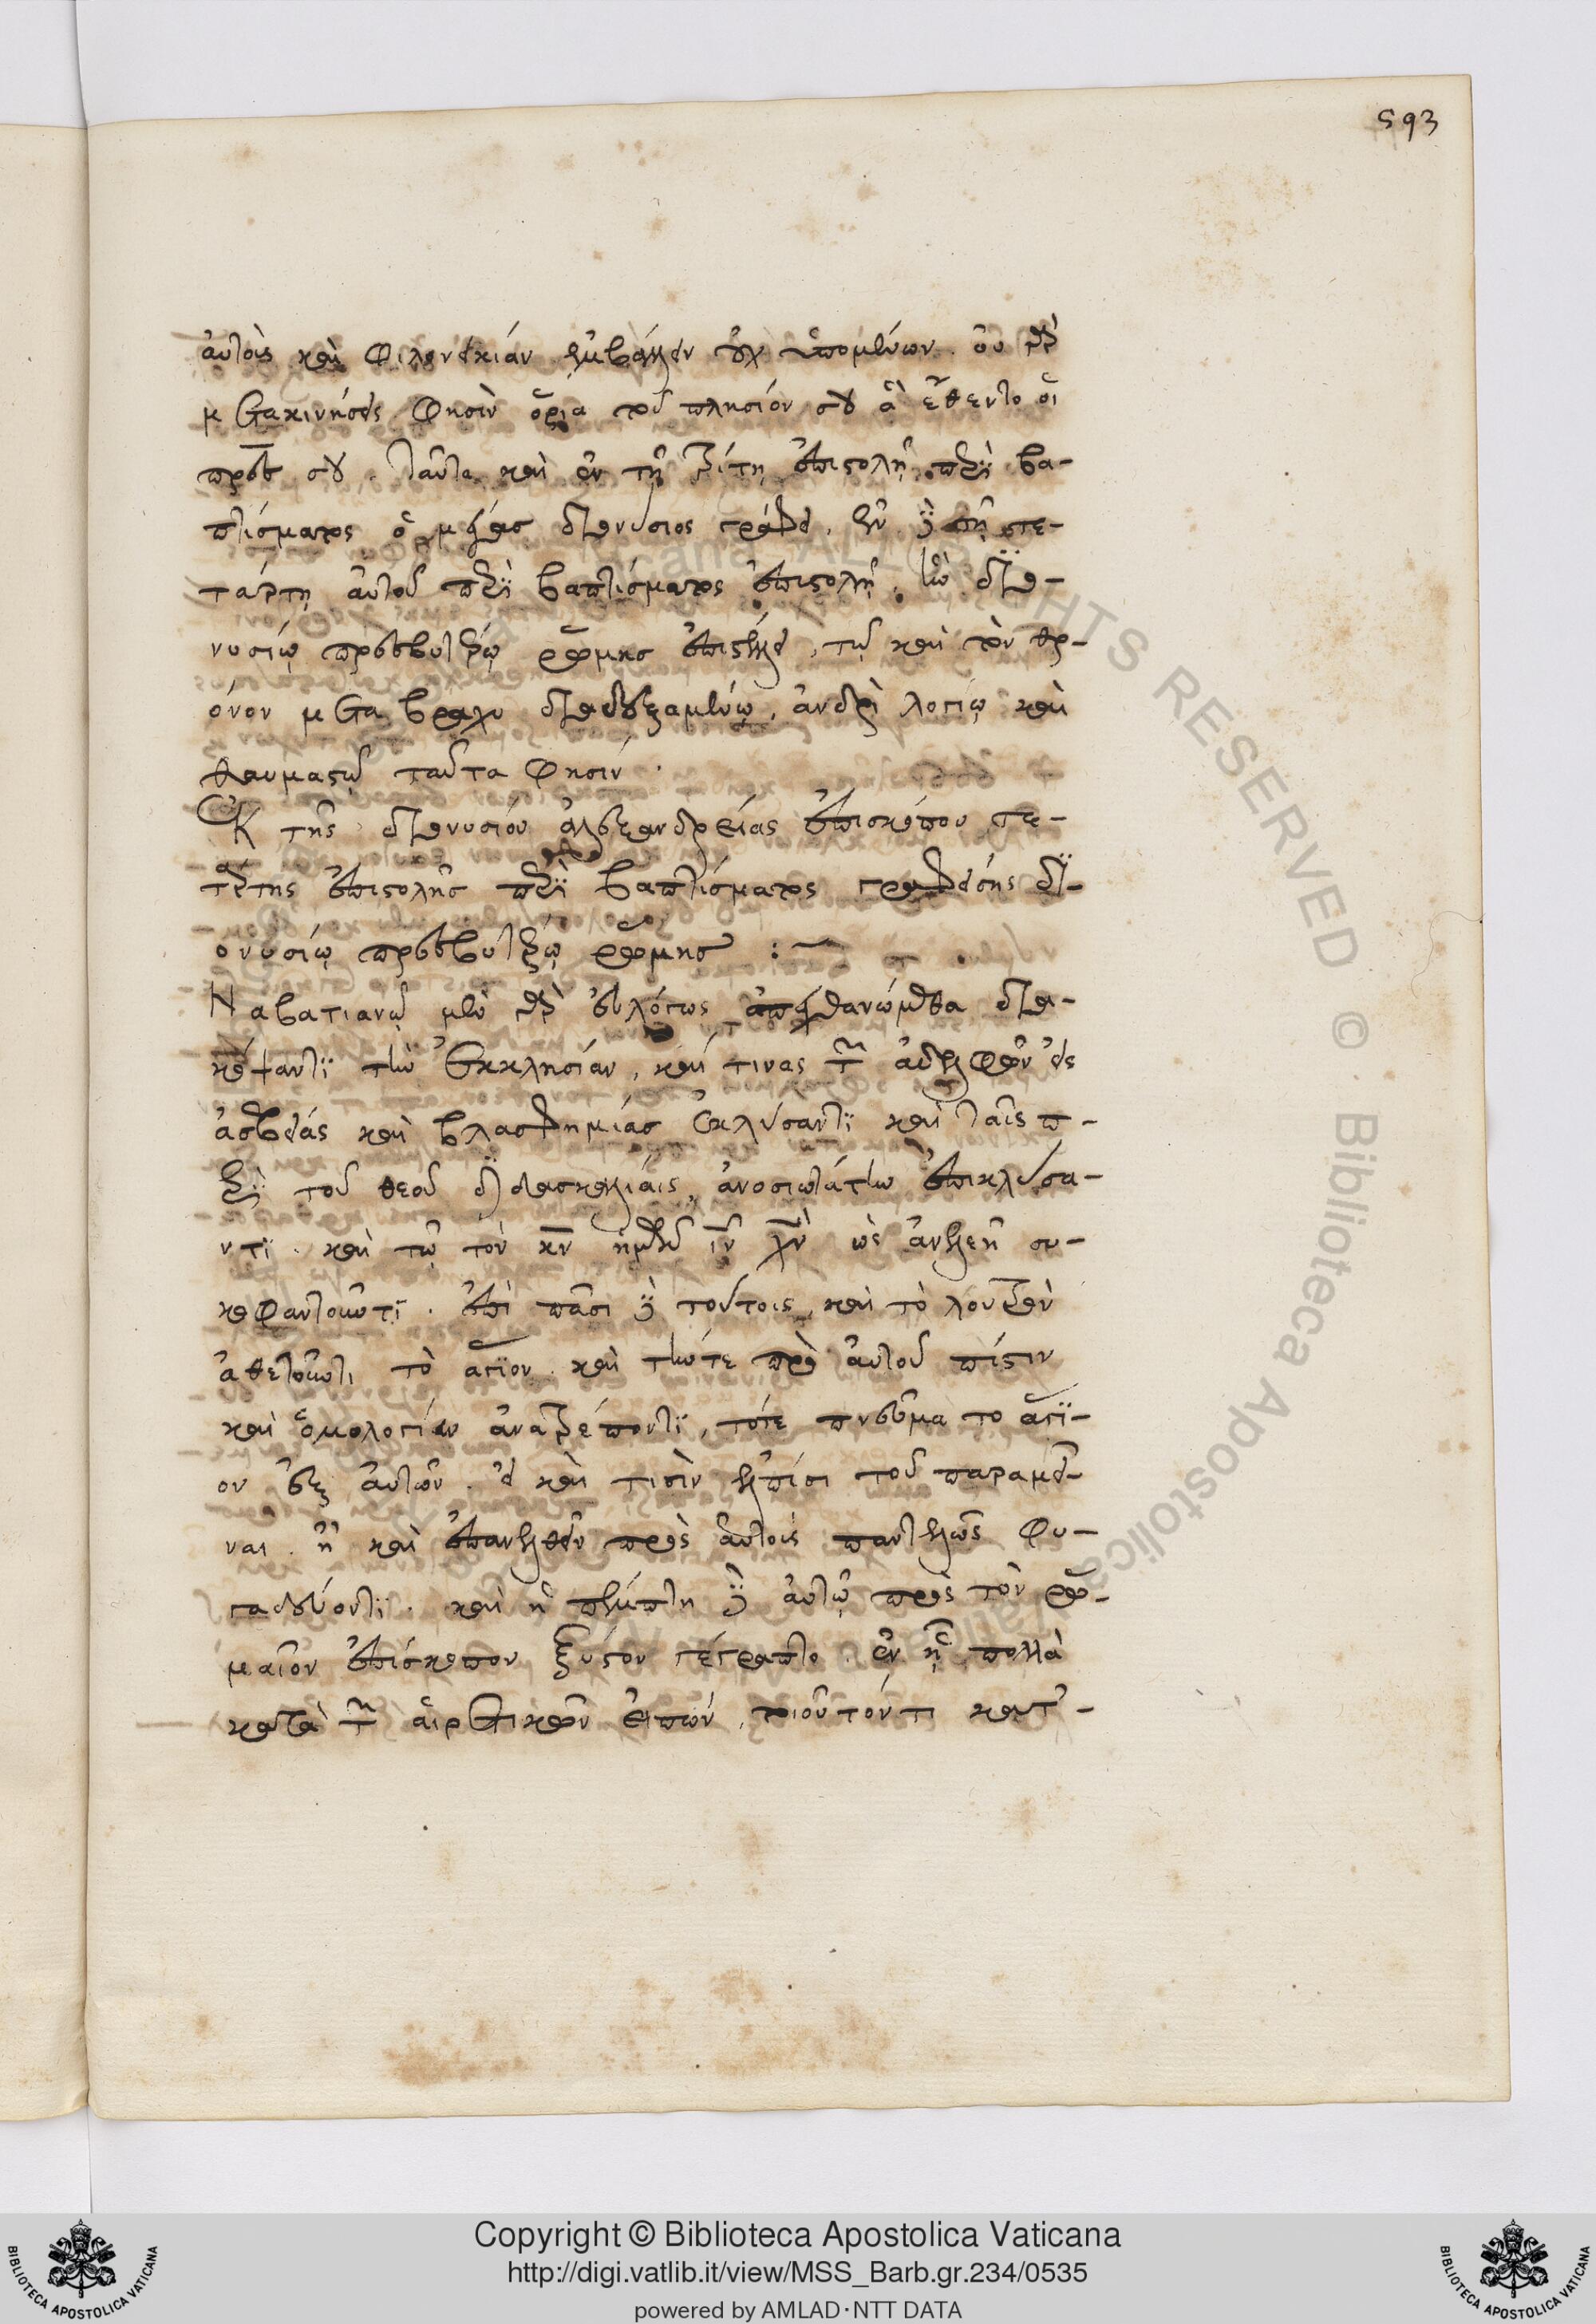 593
αὐτοὺς καὶ φιλονεικίαν ἐμβαλεῖν οὐχ ὑπομένων. οὐ γὰρ
μετακινήσεις φησὶν ὅρια τοῦ πλησίον σου ἃ ἔθεντο οἱ
πρες σου. ταῦτα καὶ ἐν τῇ τρίτῃ ἐπιστολῇ περὶ βα-
πτίσματος ὁ μέγας διονύσιος γράφει. ἐν δὲ τῇ τε-
τάρτῃ αὐτοῦ περὶ βαπτίσματος ἐπιστολῇ, ἣν διο-
νυσίῳ πρεσβυτέρῳ ῥώμης ἐπιστέλλει, τῷ καὶ τὸν θρ-
όνον μετα βραχυ διαδεξαμένῳ, ἀνδρὶ λογίῳ καὶ
θαυμαστῷ ταῦτα φησίν.
Ἐκ τῆς διονυσίου ἀλεξανδρείας ἐπισκόπου τε-
τάρτης ἐπιστολῆς περὶ βαπτίσματος γραφείσης δι-
ονυσίῳ πρεσβυτέρῳ ῥώμης :
Ναβατιανῷ μὲν γὰρ εὐλόγως ἀπεχθανώμεθα δια-
κόψαντι τὴν ἐκκλησίαν, καί τινας τῶν ἀδελφῶν εἰς
ἀσεβείας καὶ βλασφημίας ἑκλύσαντι καὶ ταῖς π-
ερὶ τοῦ θεοῦ διδασκαλίαις, ἀνοσιωτάτην ἐπικλύσα-
ντι. καὶ τῷ τὸν κν ἡμῶν ιν χν ὡς ἀνηλεῆ συ-
κοφαντοῦντι. ἐπὶ πᾶσι δὲ τούτοις, καὶ τὸ λουτρὸν
ἀθετοῦντι τὸ ἅγιον. καὶ τήν τε πρὸ αὐτοῦ πίστιν
καὶ ὁμολογίαν ἀνατρέποντι, τότε πνεῦμα το ἅγι-
ον ἐξ αὐτῶν. εἰ καὶ τισὶν ἐλπίσι τοῦ παραμεῖ-
ναι. ἢ καὶ ἐπανελθεῖν πρὸς αὐτοὺς παντελῶς φυ-
γαδεύοντι. καὶ ἡ πέμπτη δὲ αὐτῷ πρὸς τὸν ῥω-
μαῖον ἐπίσκοπον ξυστον γέγραπτο. ἐν ᾗ πολλὰ
κατὰ τῶν αἱρετικῶν εἰπὼν, τοιοῦτόν τι κατ-
Copyright © Biblioteca Apostolica Vaticana
http://digi.vatlib.it/view/MSS_Barb.gr.234/0535
powered by AMLAD·NTT DATA